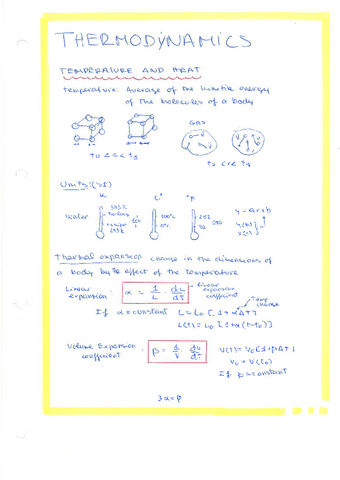 THERMODYNAMICS
TEMPERATURE AND HEAT
Temperature: Average of the kinetic energy
of the molecules of a body
Gas
t0 << t1
t0 << t1
Units: (SI)
K C° °F
Water
373 K
100°C
0°C
Thermal expansion change in the dimensions of
a body by the effect of the temperature
Linear
expansion: α = 1/L · dL/dT
Linear
expansion
coefficient
Temp
change
If α = constant L = L0 [1 + αΔT]
L(T) = L0 [1 + α(T-T0)]
Volume Expansion
coefficient : β = 1/V dV/dT
V(T) = V0 [1 + βΔT]
V0 = V(t0)
If β = constant
3α = β